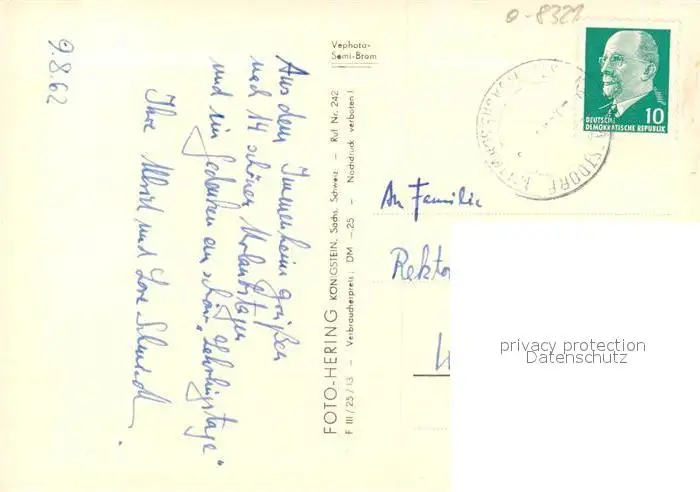 9.8.62
Aus dem Immenheim grüßen
nach 14 schönen Urlaubstagen
und ein Gedenken an schöne „Lehrlingstage“
Ihre Ulrich und Lore
Vephota-
Semi-Brom
FOTO-HERING KÖNIGSTEIN, Sächs. Schweiz. - Ruf Nr. 242
F III/25/13 - Verbraucherpreis: DM -,25 - Nachdruck verboten!
0-8321
10
DEUTSCHE
DEMOKRATISCHE REPUBLIK
An Familie
Rektor
privacy protection
Datenschutz